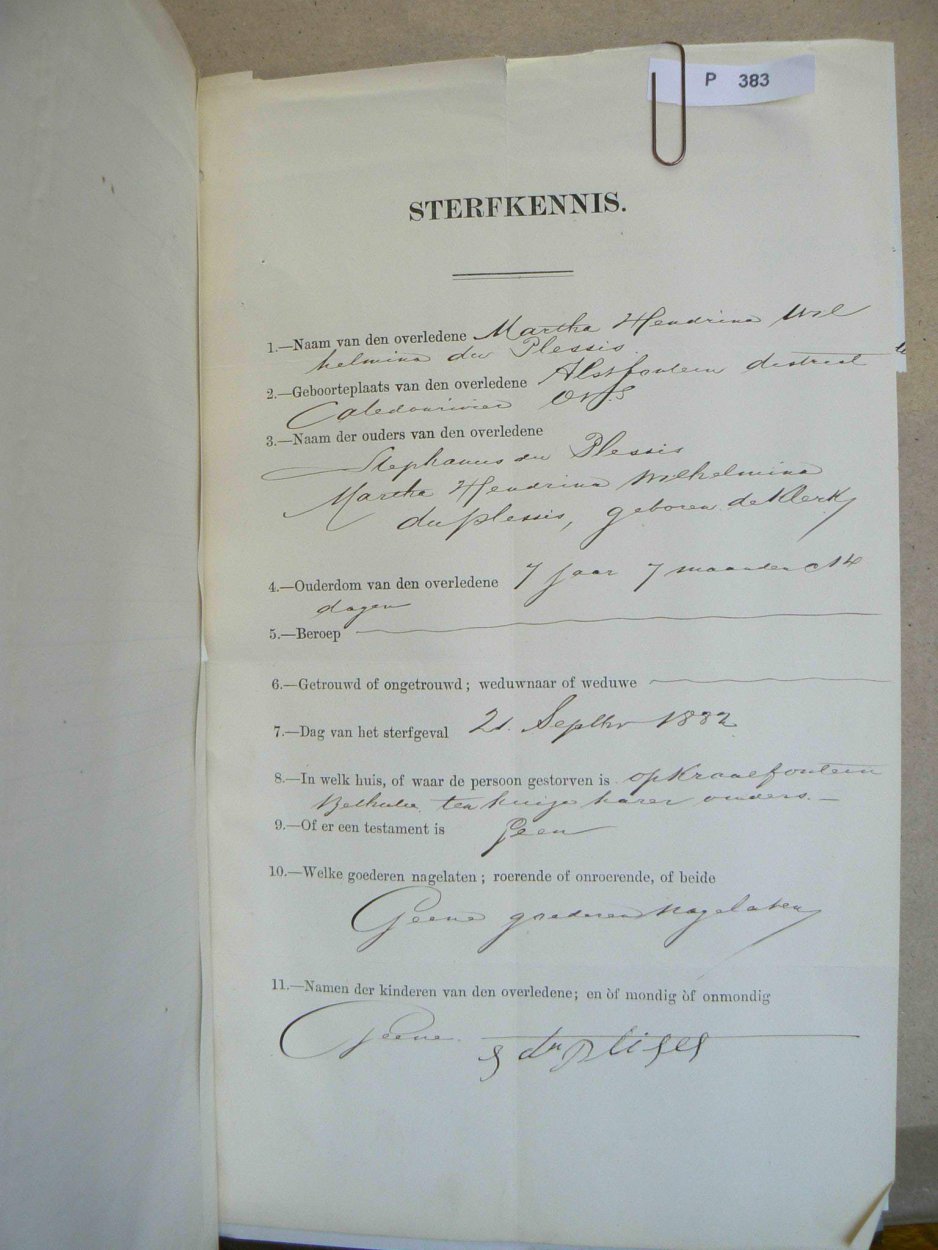 P 383
STERFKENNIS.
1.—Naam van den overledene Martha Hendrina Wil
helmina du Plessis
2.—Geboorteplaats van den overledene district
Caledonrivier OVS
3.—Naam der ouders van den overledene
Stephanus du Plessis
Martha Hendrina Wilhelmina
du Plessis, geboren de Klerk
4.—Ouderdom van den overledene 7 jaar 7 maanden 14
dagen
5.—Beroep
6.—Getrouwd of ongetrouwd; weduwnaar of weduwe
7.—Dag van het sterfgeval 21 Septbr 1882
8.—In welk huis, of waar de persoon gestorven is op Kraaefontein
Bethulie ten huize harer ouders.—
9.—Of er een testament is Geen
10.—Welke goederen nagelaten; roerende of onroerende, of beide
Geene goederen nagelaten
11.—Namen der kinderen van den overledene; en òf mondig òf onmondig
Geene.
S du Plises